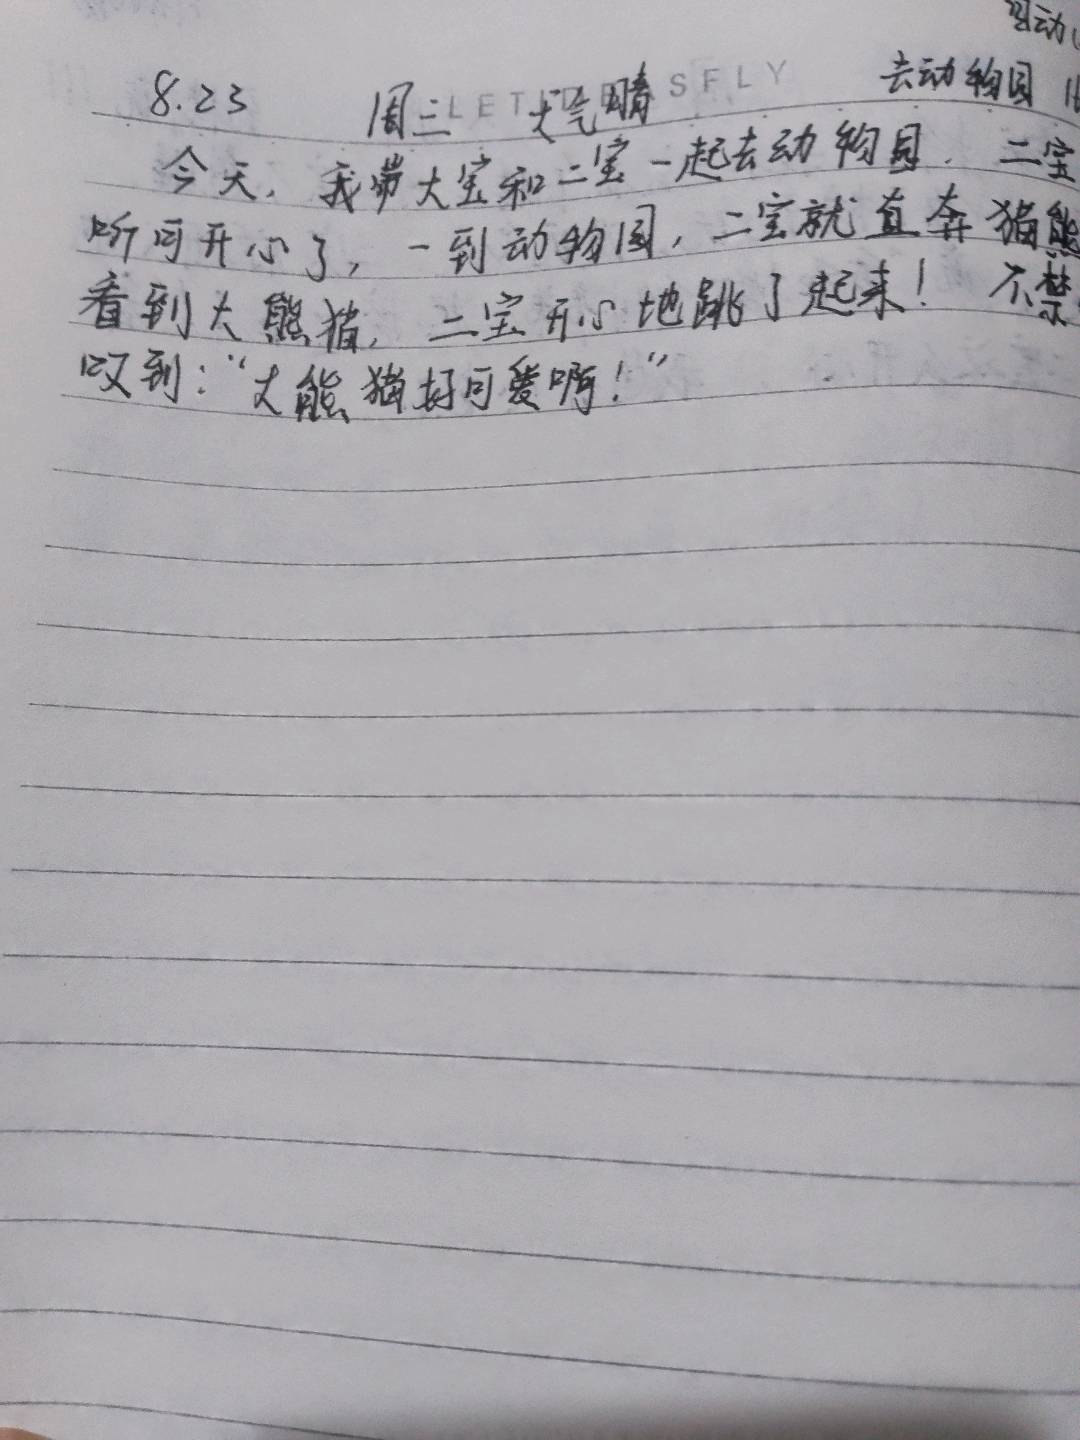 动
去动物园
8.23 周三 天气晴
LET SFLY
今天，我带大宝和二宝一起去动物园．二宝
听可开心了，一到动物园，二宝就直奔猫熊
看到大熊猫，二宝开心地跳了起来！不禁
叹到：“大熊猫好可爱啊！”